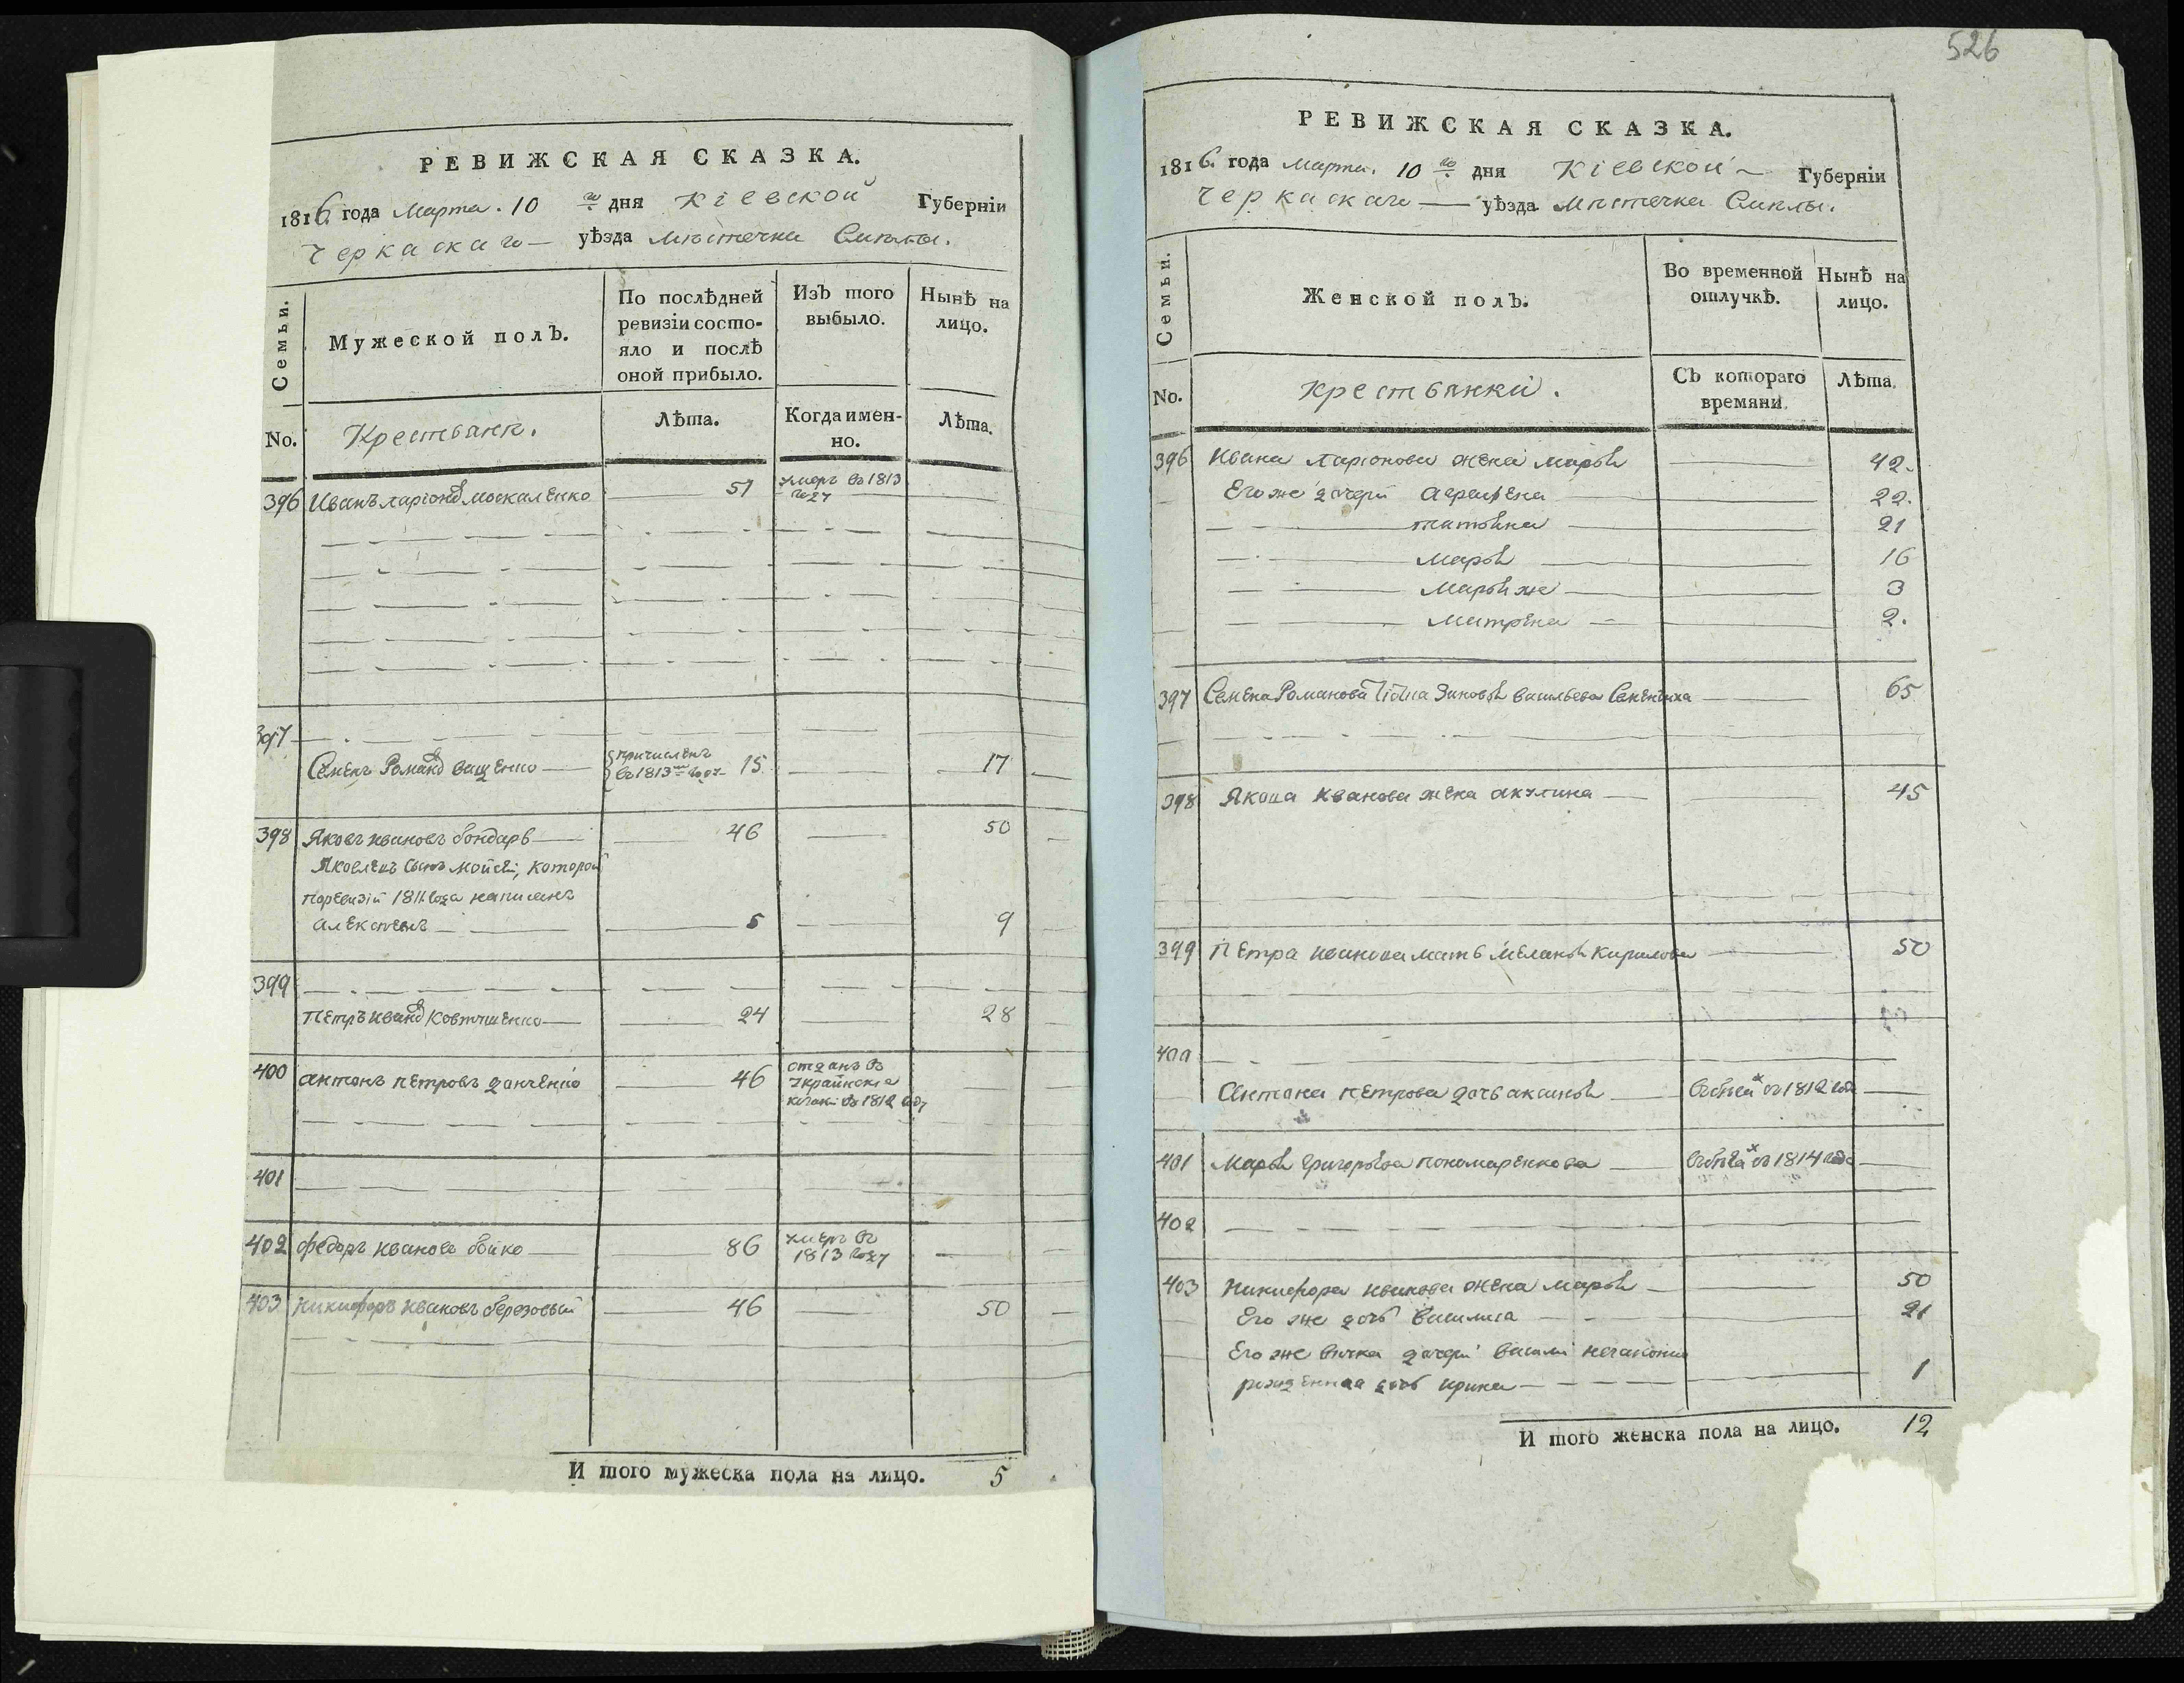 РЕВИЖСКАЯ СКАЗКА.
1816. года Марта. 10 го дня Кіевской Губерніи
Черкаскаго уѣзда мѣстечка Смилы.
Семьи.
Мужеской полъ.
По послѣдней ревизіи состояло и послѣ оной прибыло.
Изъ того выбыло.
Нынѣ на лицо.
No.
Крестьянъ.
Лѣта.
Когда именно.
Лѣта.
396 Иванъ Ларіоновъ Москаленко 51 умеръ въ 1813 году
397
Семенъ Романовъ Ващенко причисленъ въ 1813м году 15 17
398 Яковъ Ивановъ Бондарь 46 50
Яковлевъ сынъ Мойсей, которой
по ревизіи 1811 года написанъ
Алексѣемъ 5 9
399
Петръ Ивановъ 24 28
400 Антонъ Петровъ Данченко 46 отданъ въ Украинскіе козаки въ 1812 году
401
402 Федоръ Ивановъ Бойко 86 умеръ въ 1813 году
403 Никифоръ Ивановъ Березовый 46 50
И того мужеска пола на лицо. 5
526
РЕВИЖСКАЯ СКАЗКА.
1816. года Марта. 10 го дня Кіевской Губерніи
Черкаскаго уѣзда мѣстечка Смилы.
Семьи.
Женской полъ.
Во временной отлучкѣ.
Нынѣ на лицо.
No.
Крестьянки.
Съ котораго времяни.
Лѣта.
396 Ивана Ларіонова жена Марья 42.
Его же дочери 22.
Татьяна 21
Марья 16
Марья же 3
Матрена 2.
397 Семена Романова Зиновья Васильева 65
398 Якова Иванова жена Акулина 45
399 Петра Иванова мать Меланья Кирилова 50
400
Антона Петрова дочь Аксинья въ 1812 году
401 Марья Григорьева Пономаренкова въ 1814 году
402
403 Никифора Иванова жена Марья 50
Его же дочь Василиса 21
Его же внучка дочери незаконно
рожденная дочь Ирина 1
И того женска пола на лицо. 12